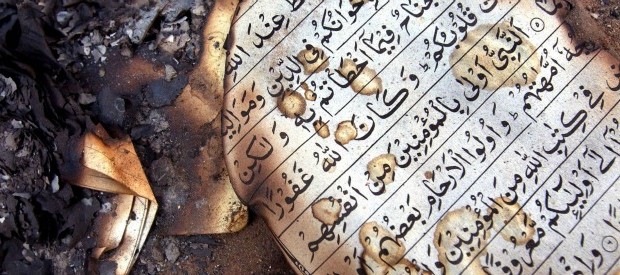 عِندَ اللَّهِ
فِي الدِّينِ
فِيمَا أَخْطَأْتُم بِهِ وَلَٰكِن
قُلُوبُكُمْ وَكَانَ اللَّهُ غَفُورًا
٥ النَّبِيُّ أَوْلَىٰ بِالْمُؤْمِنِينَ مِنْ أَنفُسِهِمْ
أُمَّهَٰتُهُمْ وَأُولُوا الْأَرْحَامِ بَعْضُهُمْ
فِي كِتَٰبِ اللَّهِ مِنَ الْمُؤْمِنِينَ
أَوْلِيَائِكُم مَّعْرُوفًا